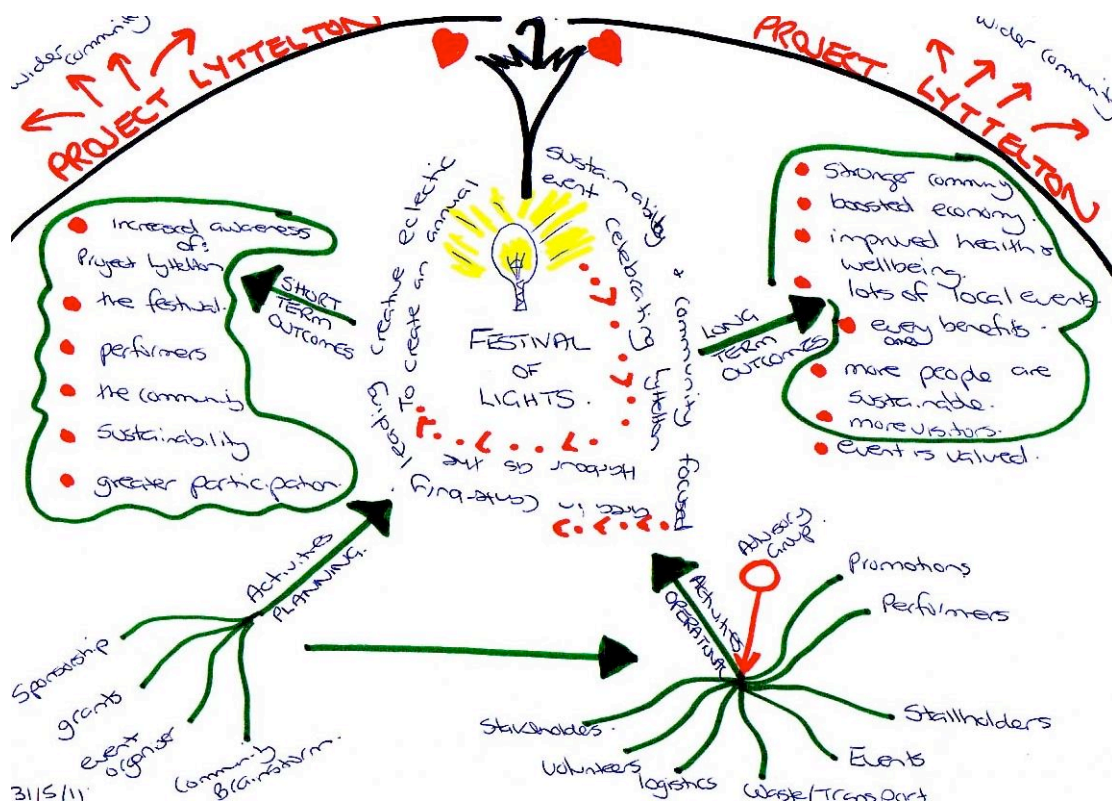 wider
community
PROJECT LYTTELTON
PROJECT LYTTELTON
wider
community
To create an eclectic
annual
sustainability
event
celebrating Lyttelton
Harbour as the
leading
creative
& community focused
area in Canterbury
FESTIVAL
OF
LIGHTS.
SHORT
TERM
OUTCOMES
increased awareness
of:
Project Lyttelton
the festival.
performers
the community
sustainability
greater participation.
LONG
TERM
OUTCOMES
Stronger community
boosted economy.
improved health &
wellbeing.
lots of local events
every benefits.
one
more people are
sustainable.
more visitors.
event is valued.
Activities
PLANNING.
Sponsorship
grants
event
organiser
Community
Brainstorm.
Activities
OPERATIONAL
Advisory
Group.
Promotions
Performers
Stallholders
Events
Waste/Transport
logistics
Volunteers
Stakeholders.
31/5/11.